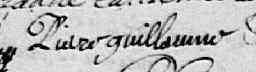 Pierre guillaume